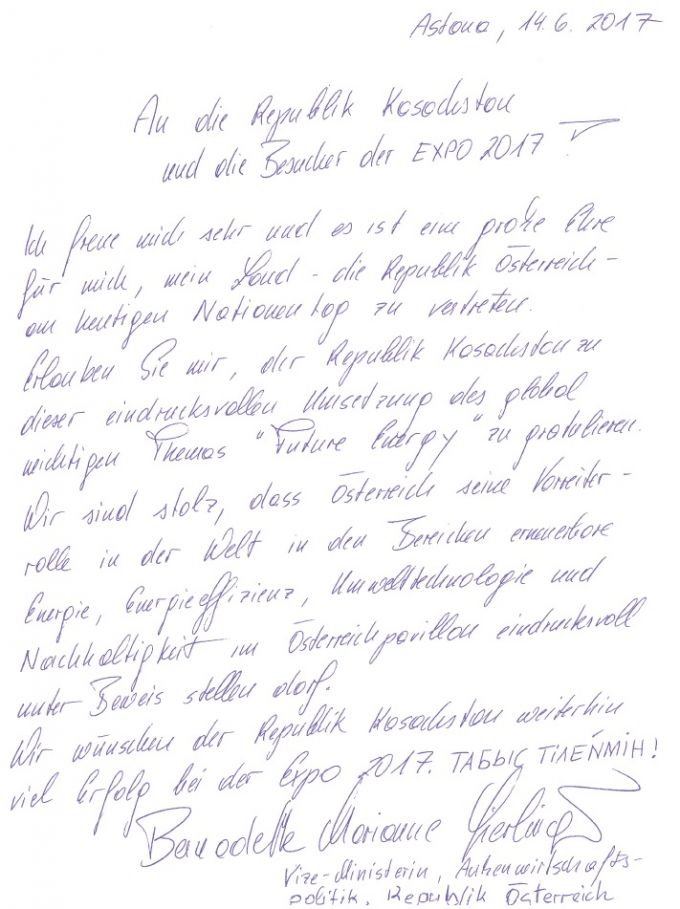 Astana, 14.6. 2017
An die Republik Kasachstan
und die Besucher der EXPO 2017
Ich freue mich sehr und es ist eine große Ehre
für mich, mein Land - die Republik Österreich -
am heutigen Nationentag zu vertreten.
Erlauben Sie mir, der Republik Kasachstan zu
dieser eindrucksvollen Umsetzung des global
wichtigen Themas "Future Energy" zu gratulieren.
Wir sind stolz, dass Österreich seine Vorreiter-
rolle in der Welt in den Bereichen erneuerbare
Energie, Energieeffizienz, Umwelttechnologie und
Nachhaltigkeit im Österreichpavillon eindrucksvoll
unter Beweis stellen darf.
Wir wünschen der Republik Kasachstan weiterhin
viel Erfolg bei der Expo 2017. ТАББІС ТІЛЕЙМІН!
Bernadette Marianne Gierlinger
Vize-Ministerin, Außenwirtschafts-
politik, Republik Österreich